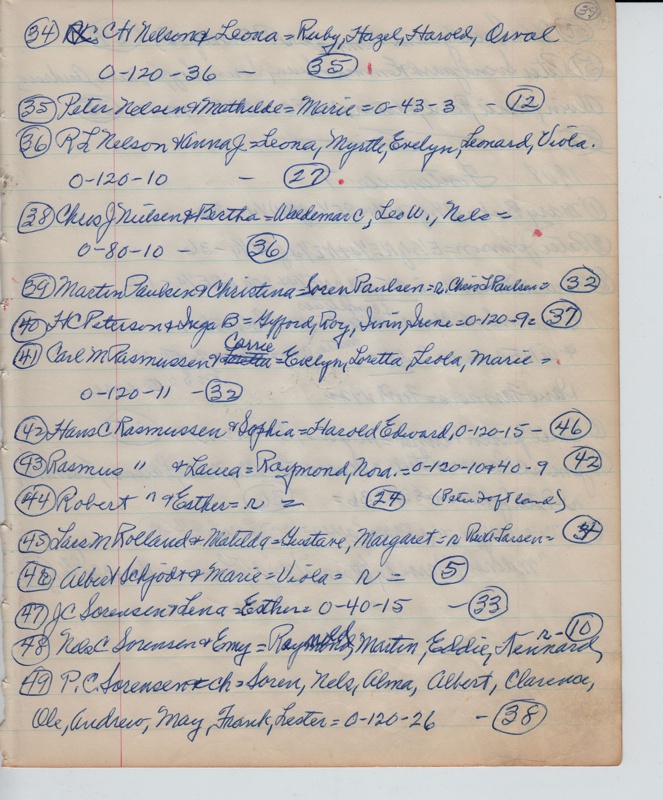 39
34 C H Nelson & Leona = Ruby, Hazel, Harold, Orval
0-120-36 - 35
35 Peter Nelsen & Mathilde = Marie = 0-43-3 - 12
36 R L Nelson & Anna J = Leona, Myrtle, Evelyn, Leonard, Viola.
0-120-10 - 27
38 Chris J Nielsen & Bertha = Waldemar C, Leo W., Nels =
0-80-10 - 36
39 Martin Paulsen & Christina = Soren Paulsen = r. Chris L Paulsen = 32
40 H C Peterson & Inga B = Gyfford, Roy, Irvin, Irene = 0-120-9 = 37
Carrie
41 Carl M Rasmussen & = Evelyn, Loretta, Leola, Marie =
0-120-11 - 32
42 Hans C Rasmussen & Sophia = Harold Edward, 0-120-15 - 46
43 Rasmus " & Laura = Raymond, Nora. = 0-120-10 & 40-9 42
44 Robert " & Esther = r = 24 (Peter Toft land)
45 Lars M Rolland & Matilda = Gustave, Margaret = r Larsen =
46 Albert Schjodt & Marie = Viola = r = 5
47 J C Sorensen & Lena = Esther = 0-40-15 - 33
48 Nels C Sorensen & Emy = Raymond, Martin, Eddie, Kennard, r - 10
49 P. C. Sorensen & ch = Soren, Nels, Alma, Albert, Clarence,
Ole, Andrew, May, Frank, Lester = 0-120-26 - 38